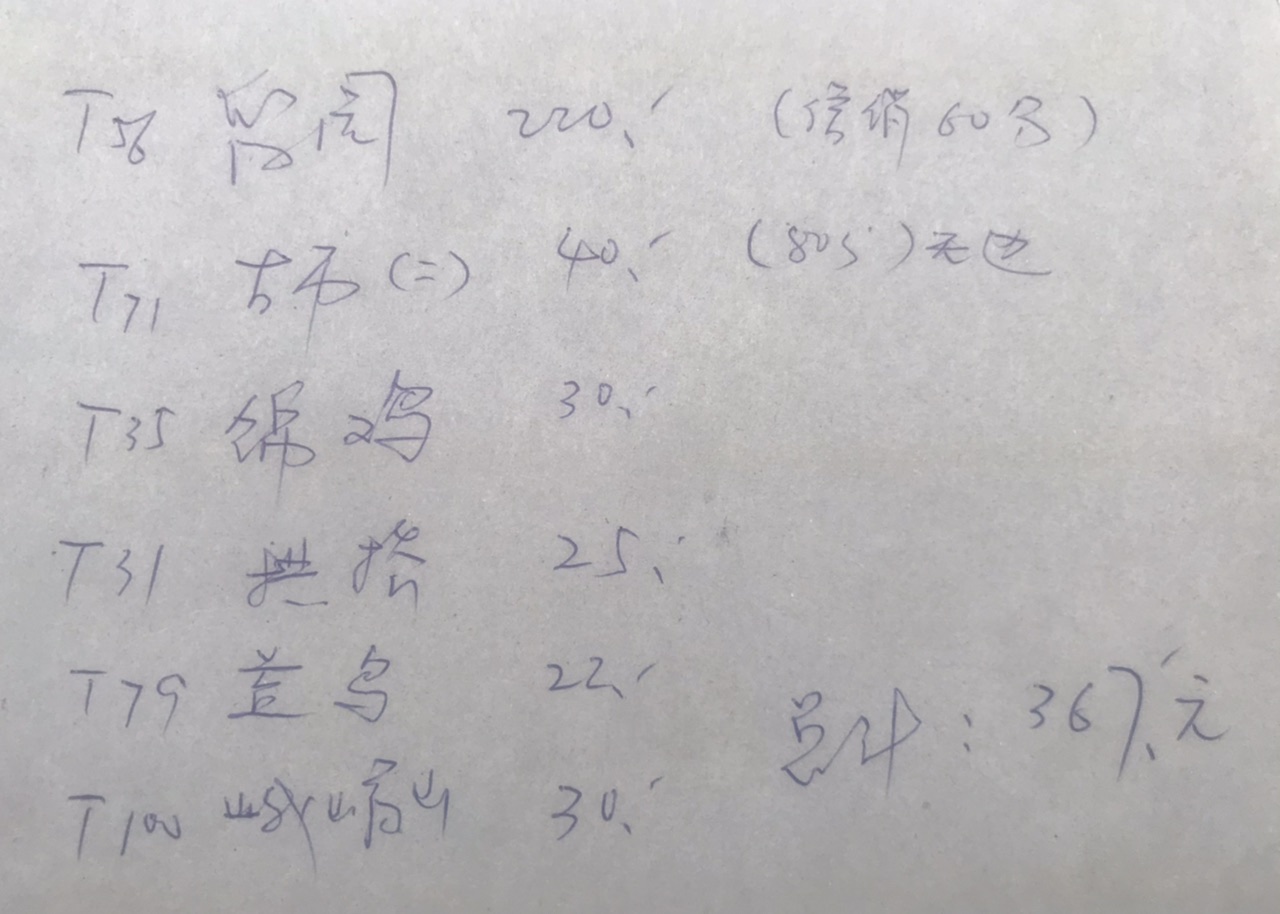 T56 留园 220. (信销60分)
T71 古币(二) 40. (805)无边
T35 锦鸡 30.
T31 拱桥 25.
T79 益鸟 22.
T100 峨嵋山 30.
总计: 367.元